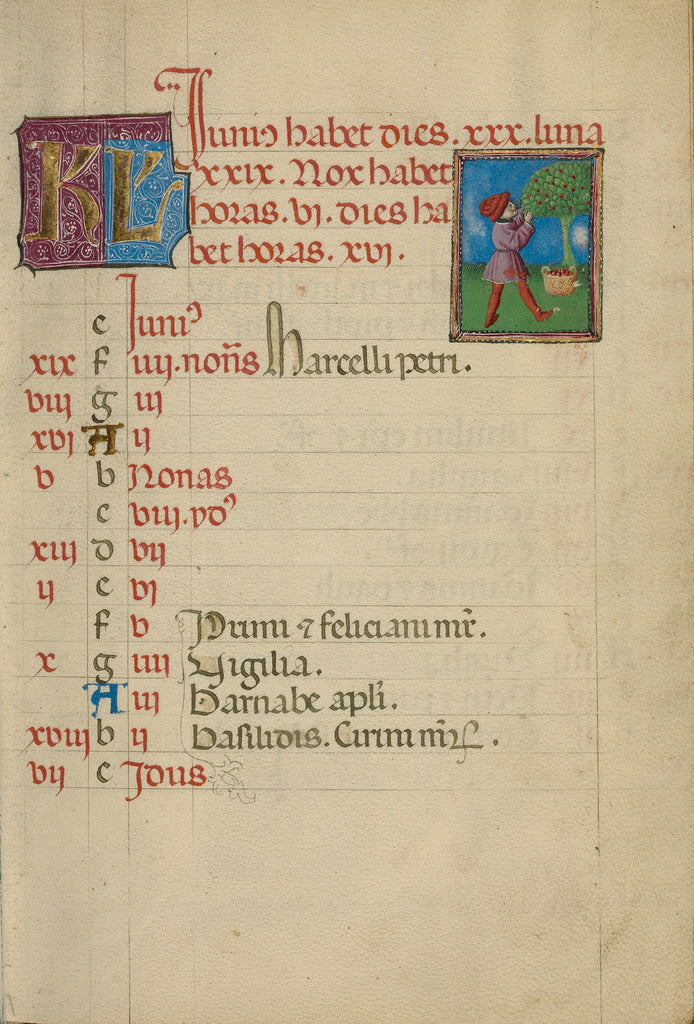 KL Juni⁹ habet dies. xxx. luna
xxix. Nox habet
horas. vi. dies ha
bet horas. xvi.
e Juni⁹
xix f iiij. noñs Marcelli petri.
viij g iij
xvj A ij
v b Nonas
c viij. yd⁹
xiij d vij
ij e vj
f v Primi ⁊ feliciani mr̃.
x g iiij Vigilia.
A iij Barnabe apl̃i.
xviij b ij Basilidis. Cirini mr̃ꝝ.
vij c Jdus